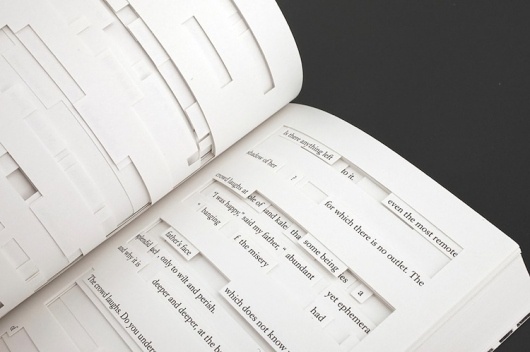 is there anything left
to it.
shadow of her
even the most remote
crowd laughs at
ple of
for which there is no outlet. The
"I was happy," said my father,
and
tha
some being
hanging
father's face
t the misery
abundant
a
splendid
yet ephemera
and why it is
only to wilt and perish.
had
deeper and deeper, at the b
which does not know
The crowd laughs. Do you under